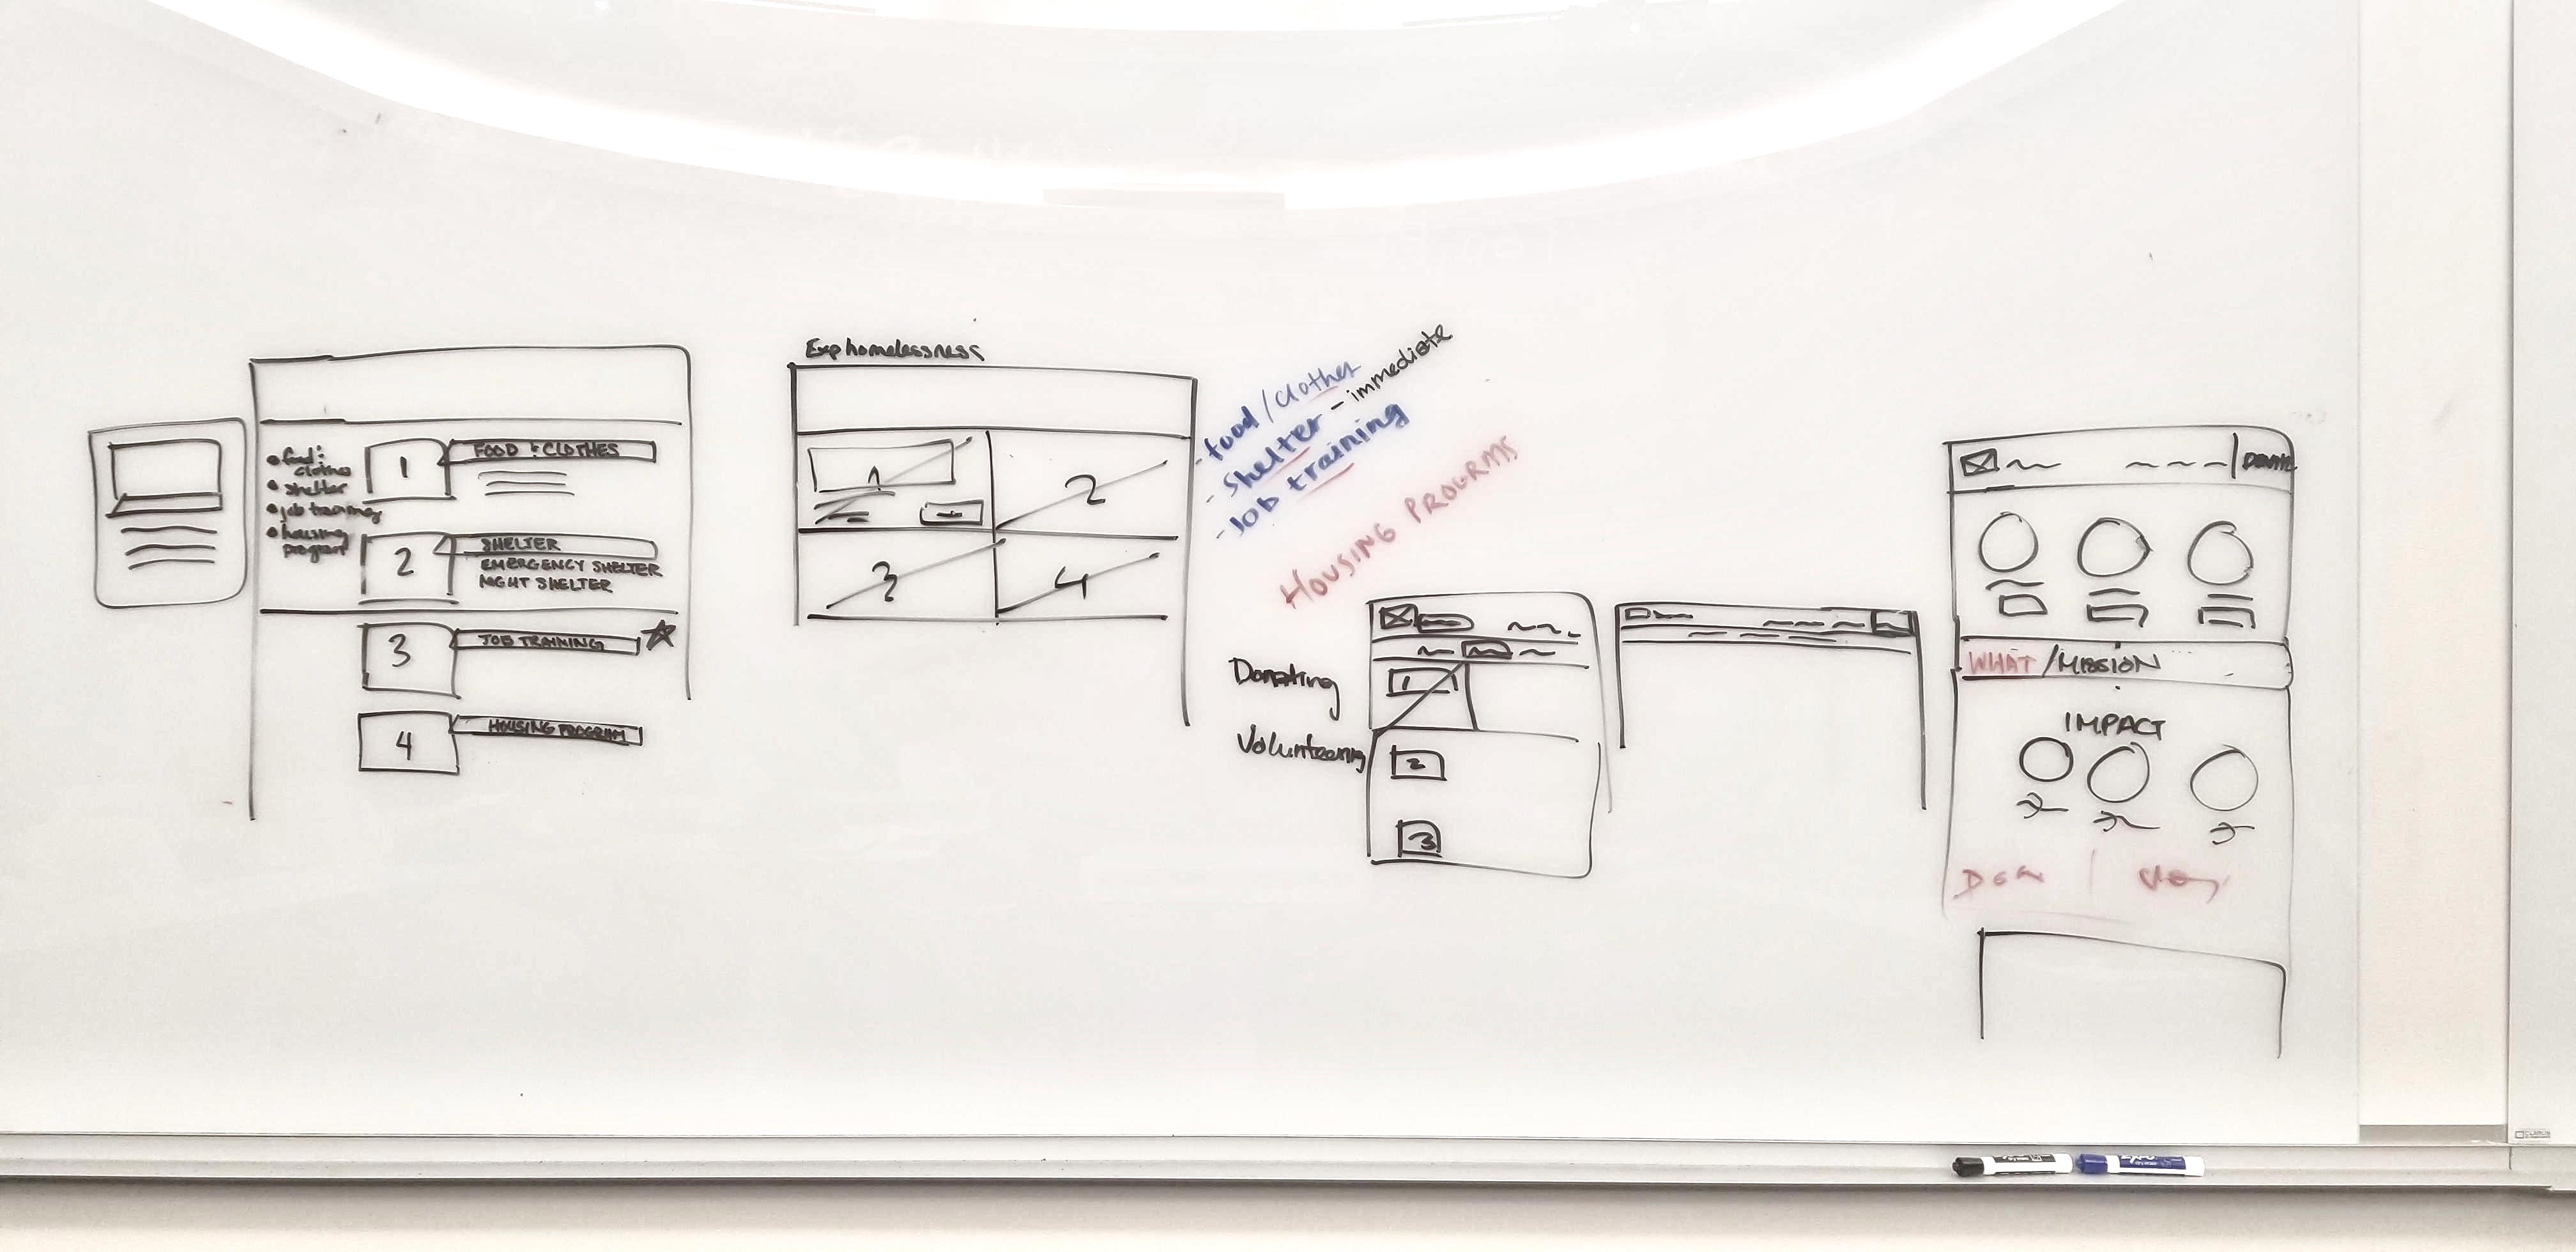 food &
clothes
shelter
job training
housing
program
1
FOOD & CLOTHES
2
SHELTER
EMERGENCY SHELTER
NIGHT SHELTER
3
JOB TRAINING
4
HOUSING PROGRAM
Exp homelessness
1
2
3
4
- food/clothes
- Shelter - immediate
- Job training
HOUSING PROGRAMS
Donating
Volunteering
1
2
3
WHAT/MISSION
IMPACT